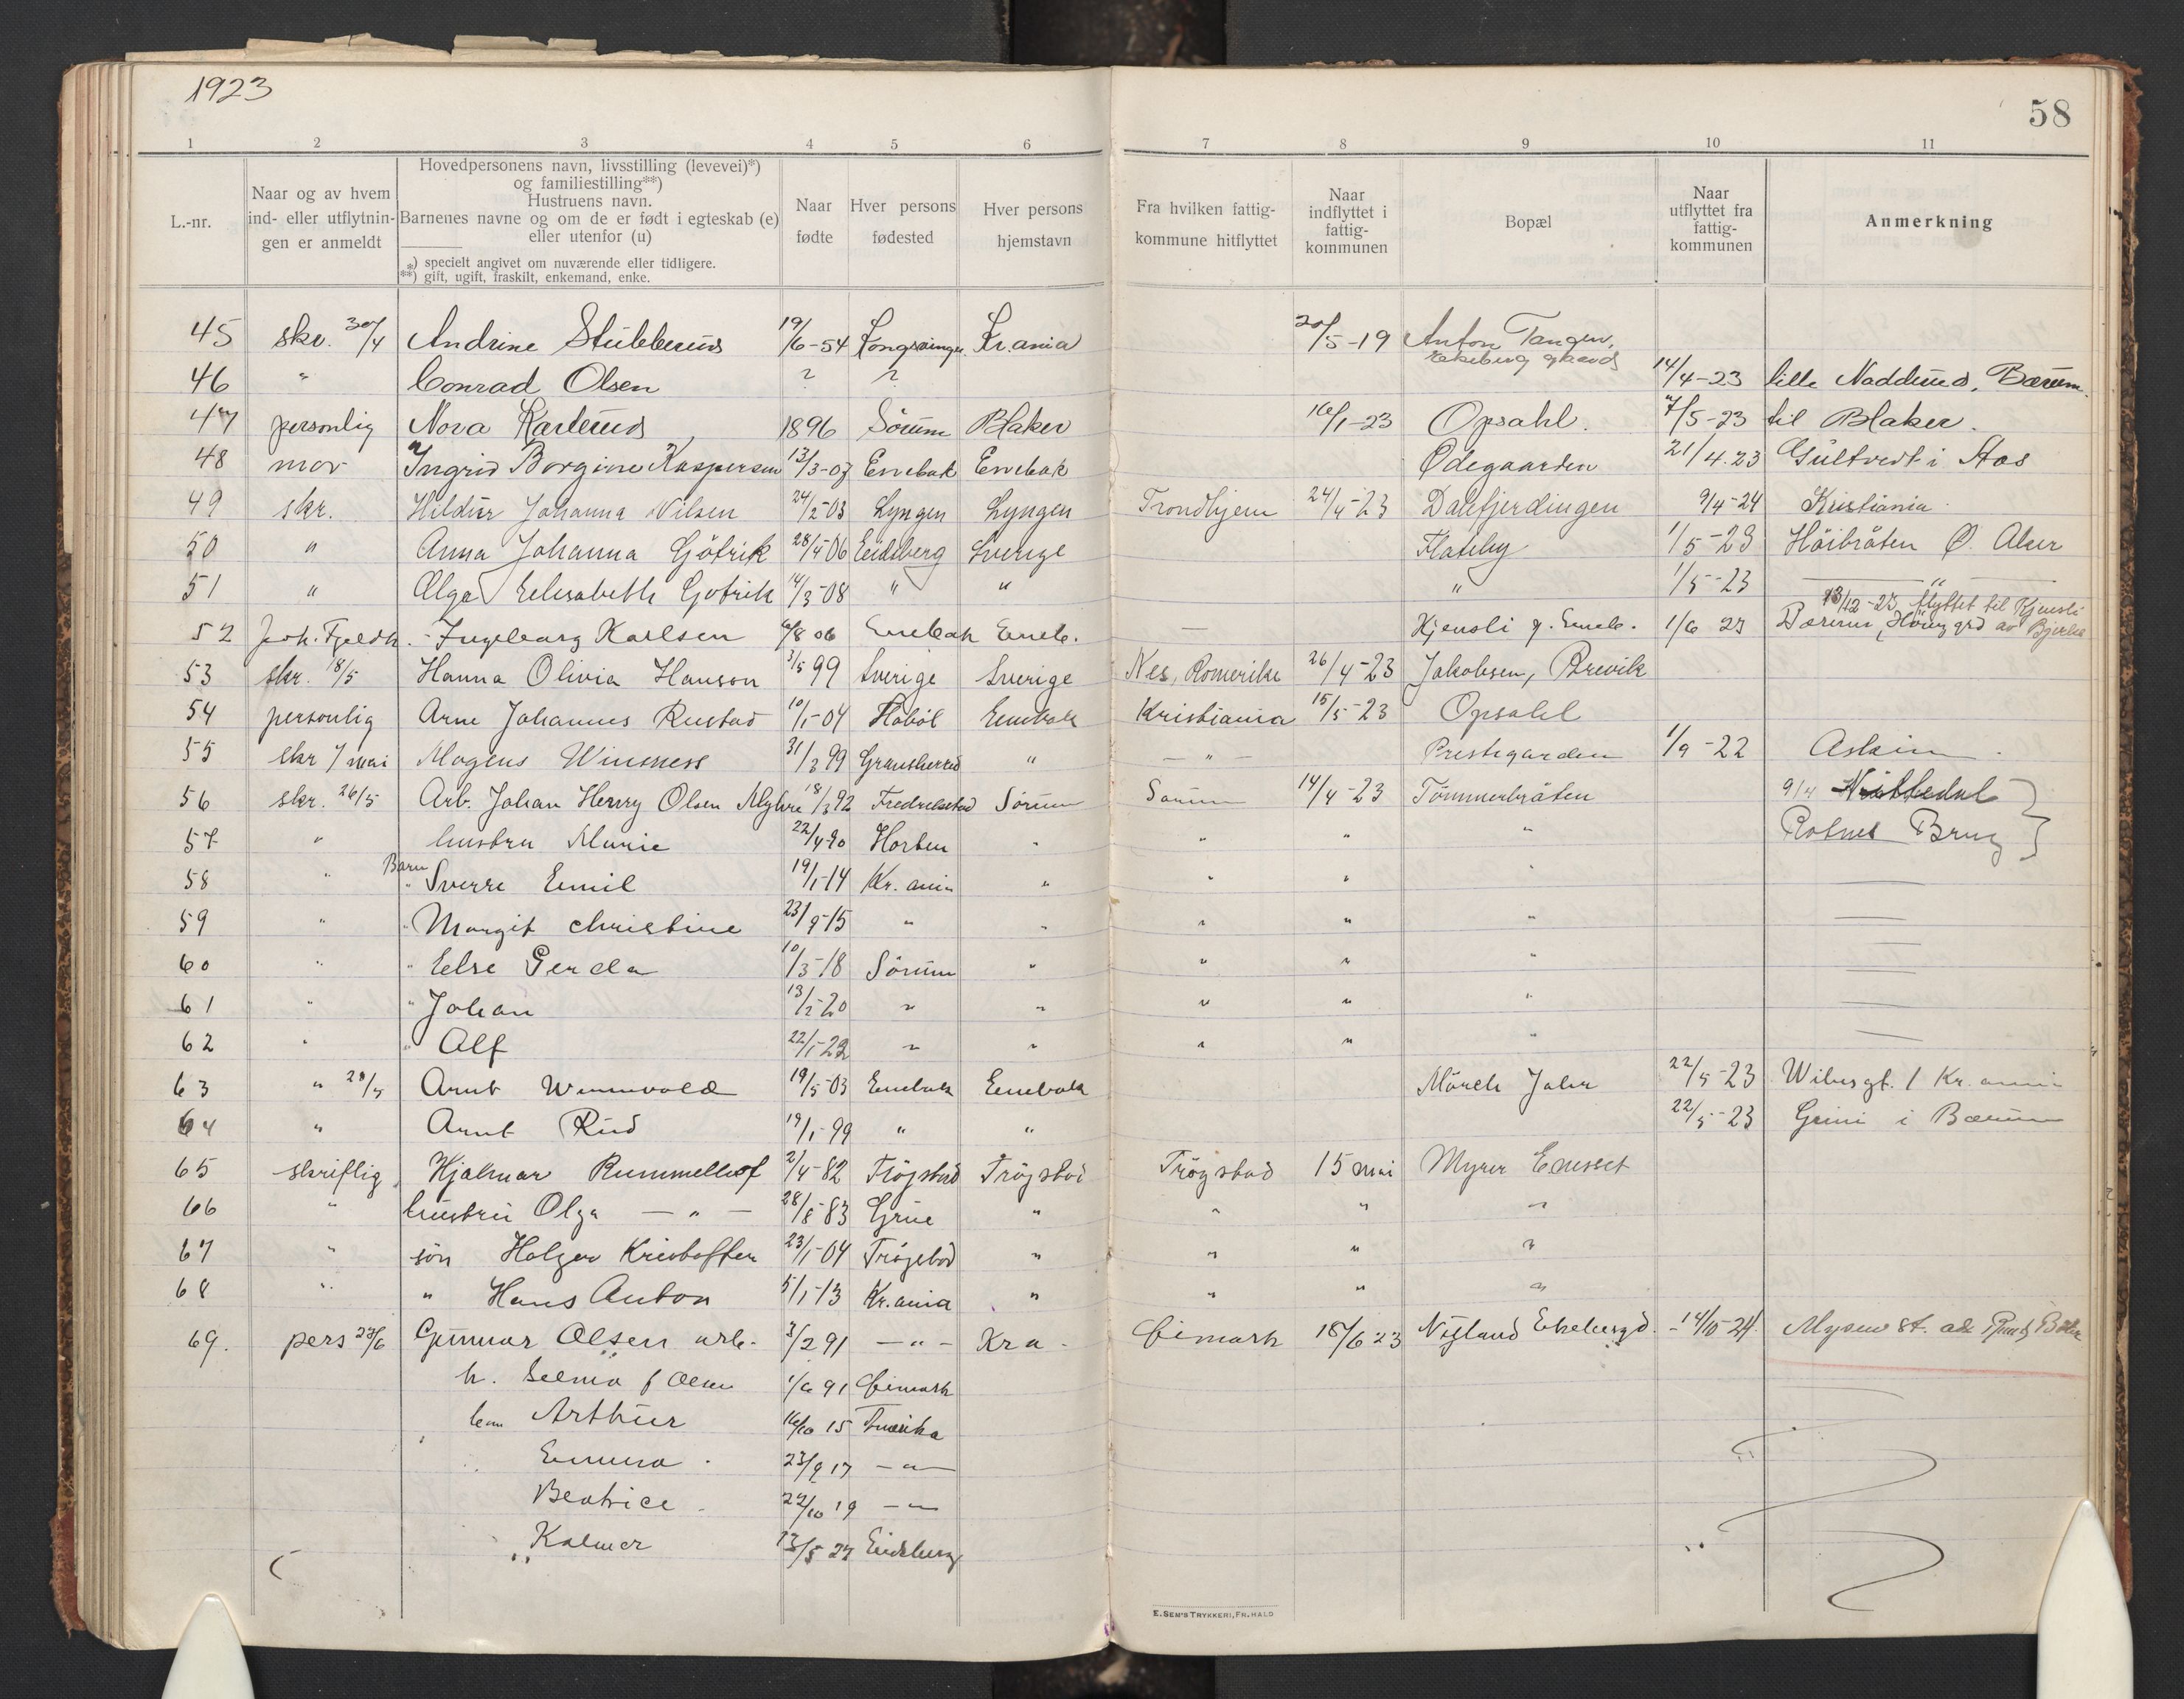 1923
58
1 2 3 4 5 6 7 8 9 10 11
L.-nr.
Naar og av hvem
ind- eller utflytnin-
gen er anmeldt
Hovedpersonens navn, livsstilling (levevei)*)
og familiestilling**)
Hustruens navn.
Barnenes navne og om de er født i egteskab (e)
eller utenfor (u)
*) specielt angivet om nuværende eller tidligere.
**) gift, ugift, fraskilt, enkemand, enke.
Naar
fødte
Hver persons
fødested
Hver persons
hjemstavn
Fra hvilken fattig-
kommune hitflyttet
Naar
indflyttet i
fattig-
kommunen
Bopæl
Naar
utflyttet fra
fattig-
kommunen
Anmerkning
45 skr. 30/4 Andrine Stubberud 19/6-54 Kongsvinger Kr.ania 20/5-19 Anton Tangen,
Ekeberg
46 " Conrad Olsen ? ? 14/4-23 lille Nadderud, Bærum
47 personlig Nora Karlerud 1896 Sörum Blaker 16/1-23 Opsahl. 7/5-23 til Blaker.
48 mor Ingrid Borgine Kaspersen 13/3-07 Enebak Enebak Ødegaarden 21/4.23 Gultvedt i Aas
49 skr. Hildur Johanna Nilsen 24/2-03 Lyngen Lyngen Trondhjem 24/4-23 Dalefjerdingen 9/4-24 Kristiania
50 " Anna Johanna Götrik 28/4-06 Eidsberg Sverige Flateby 1/5-23 Höibråten Ø. Aker
51 " Olga Elisabeth Götrik 14/3-08 " " " 1/5-23 "
13/12-23 flyttet til Kjensli
52 Joh. Fjeldh. - Ingeborg Karlsen 6/8 06 Enebak Eneb. — Kjensli g. Eneb. 1/6 23 Bærum, av Bjerke
53 skr. 18/5 Hanna Olivia Hanson 3/5 99 Sverige Sverige Nes, Romerike 26/4-23 Jakobsen, Brevik
54 personlig Arne Johannes Rustad 10/1-04 Haböl Enebak Kristiania 15/5-23 Opsahl
55 skr 7 mai Mogens Winsness 31/3 99 Gransherred " — " — Prestegarden 1/9-22 Askim
56 skr. 26/5 Arb. Johan Henry Olsen Myhre 18/3 92 Fredrikstad Sörum Sörum 14/4-23 Tömmerbråten 9/4 Nittedal
57 " hustru Marie 22/4 90 Horten " " " " Rotnes Brug
58 " Barn " Sverre Emil 19/1-14 Kr.ania " " " "
59 " " Margit Christine 23/9-15 " " " " "
60 " " Else Gerda 10/3-18 Sörum " " " "
61 " " Johan 13/2-20 " " " " "
62 " " Alf 22/1-22 " " " " "
63 " 28/5 Arnt Wennevold 19/5-03 Enebak Enebak Mörch Jahr 22/5-23 Wibesgt. 1 Kr.ania
64 " Arnt Rud 19/1-99 " " 22/5-23 Grini i Bærum
65 skriftlig Hjalmar Rummelhof 2/4-82 Trögstad Trögstad Trögstad 15 mai Myrer
66 " hustru Olga — " — 28/8-83 Grue " " " "
67 " sön Holger Kristoffer 23/1-04 Trögstad " " " "
68 " " Hans Anton 5/1-13 Kr.ania " " " "
69. pers 23/6 Gunnar Olsen arb. 3/2 91 — " — Kra. Eimark 18/6 23 14/10-24. Mysen st.
h. Selma f Olsen 1/6 91 Eimark
barn Arthur 16/10 15 Amerika
Emma . 23/9 17 — " —
Beatrice . 22/10 19 — " —
" Kalmer 13/5 22 Eidsberg
E. SEM'S TRYKKERI, FR.HALD